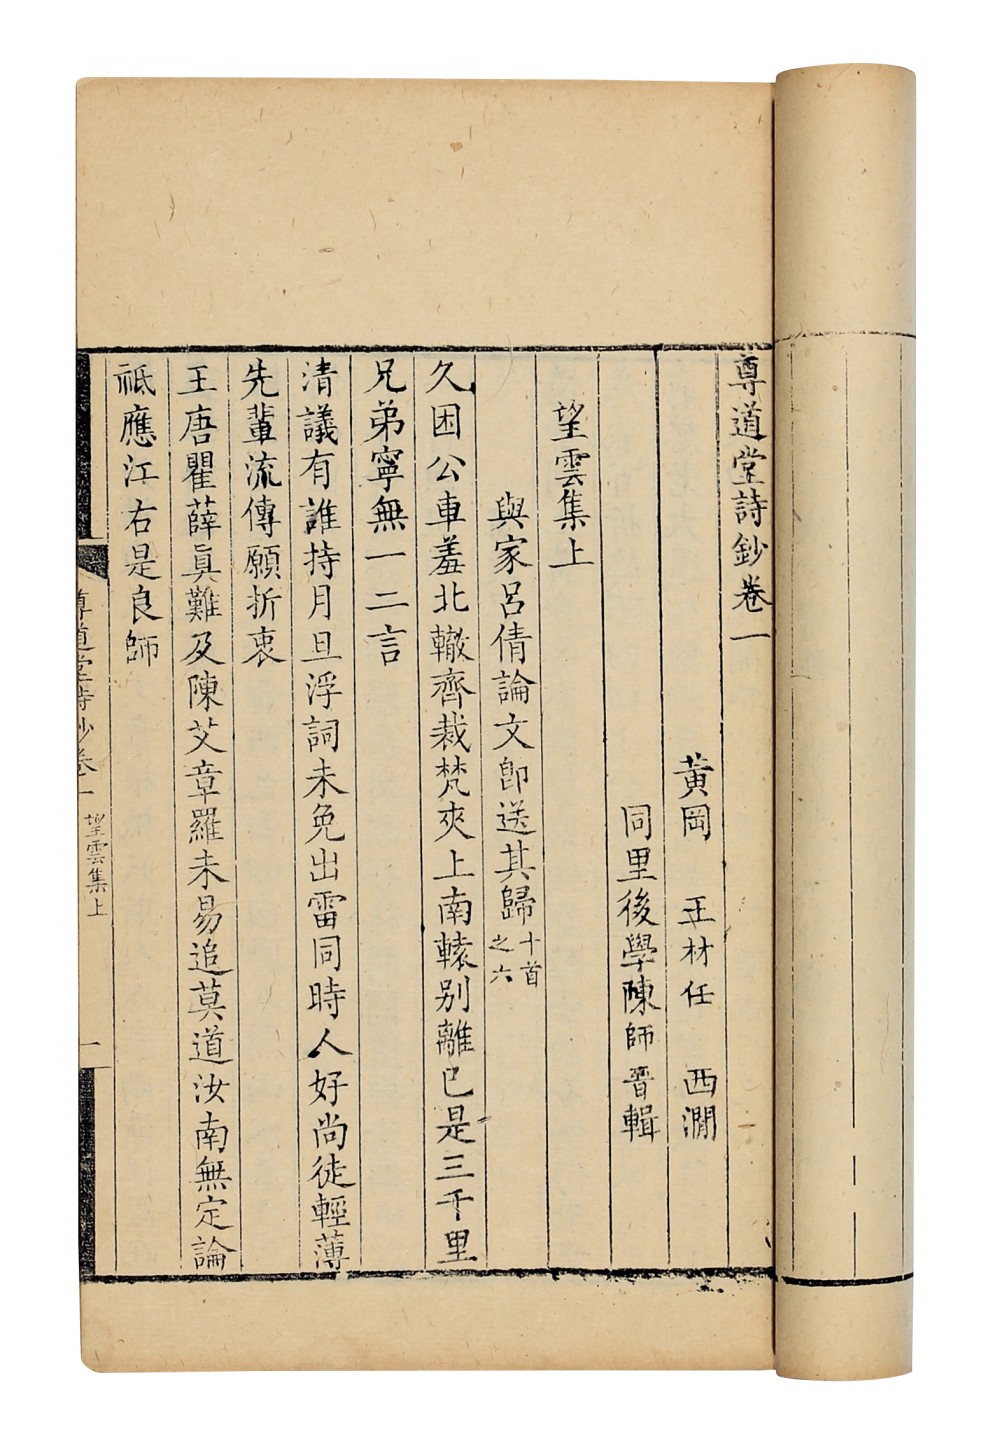 尊道堂詩鈔卷一
黃岡　王材任　西澗
同里後學陳師晉輯
望雲集上
與家呂倩論文即送其歸十首之六
久困公車羞北轍齊裁梵夾上南轅别離已是三千里
兄弟寧無一二言
清議有誰持月旦浮詞未免出雷同時人好尚徒輕薄
先輩流傳願折衷
王唐瞿薛真難及陳艾章羅未易追莫道汝南無定論
祗應江右是良師
尊道堂詩鈔卷一　望雲集上　一